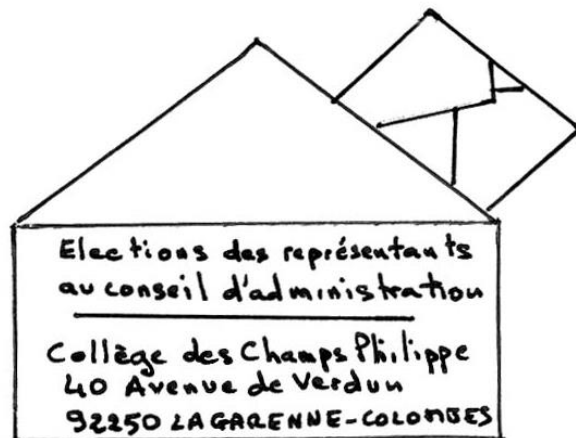 Elections des représentants
au conseil d'administration
Collège des Champs Philippe
40 Avenue de Verdun
92250 LA GARENNE-COLOMBES